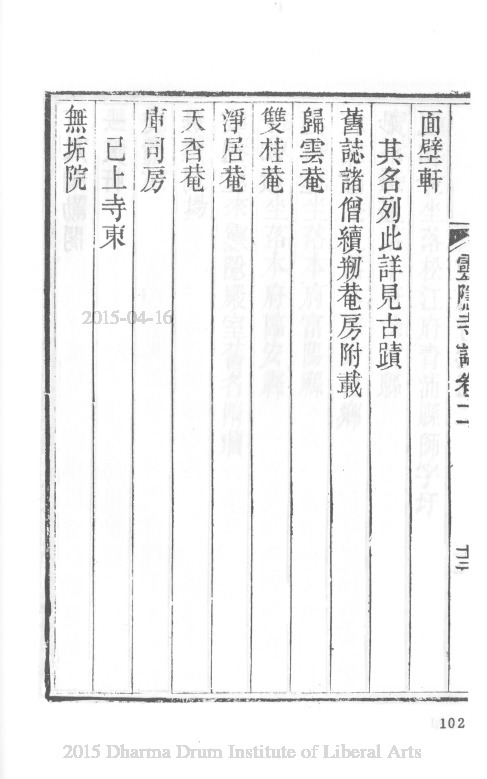 靈隱寺誌卷二
十三
面壁軒
其名列此詳見古蹟
舊誌諸僧續剏菴房附載
歸雲菴
雙桂菴
淨居菴
天香菴
庫司房
已上寺東
無垢院
2015-04-16
102
2015 Dharma Drum Institute of Liberal Arts